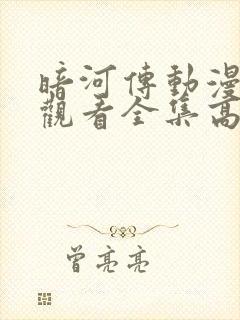 暗河傳動漫
觀看全集高
曾亮亮